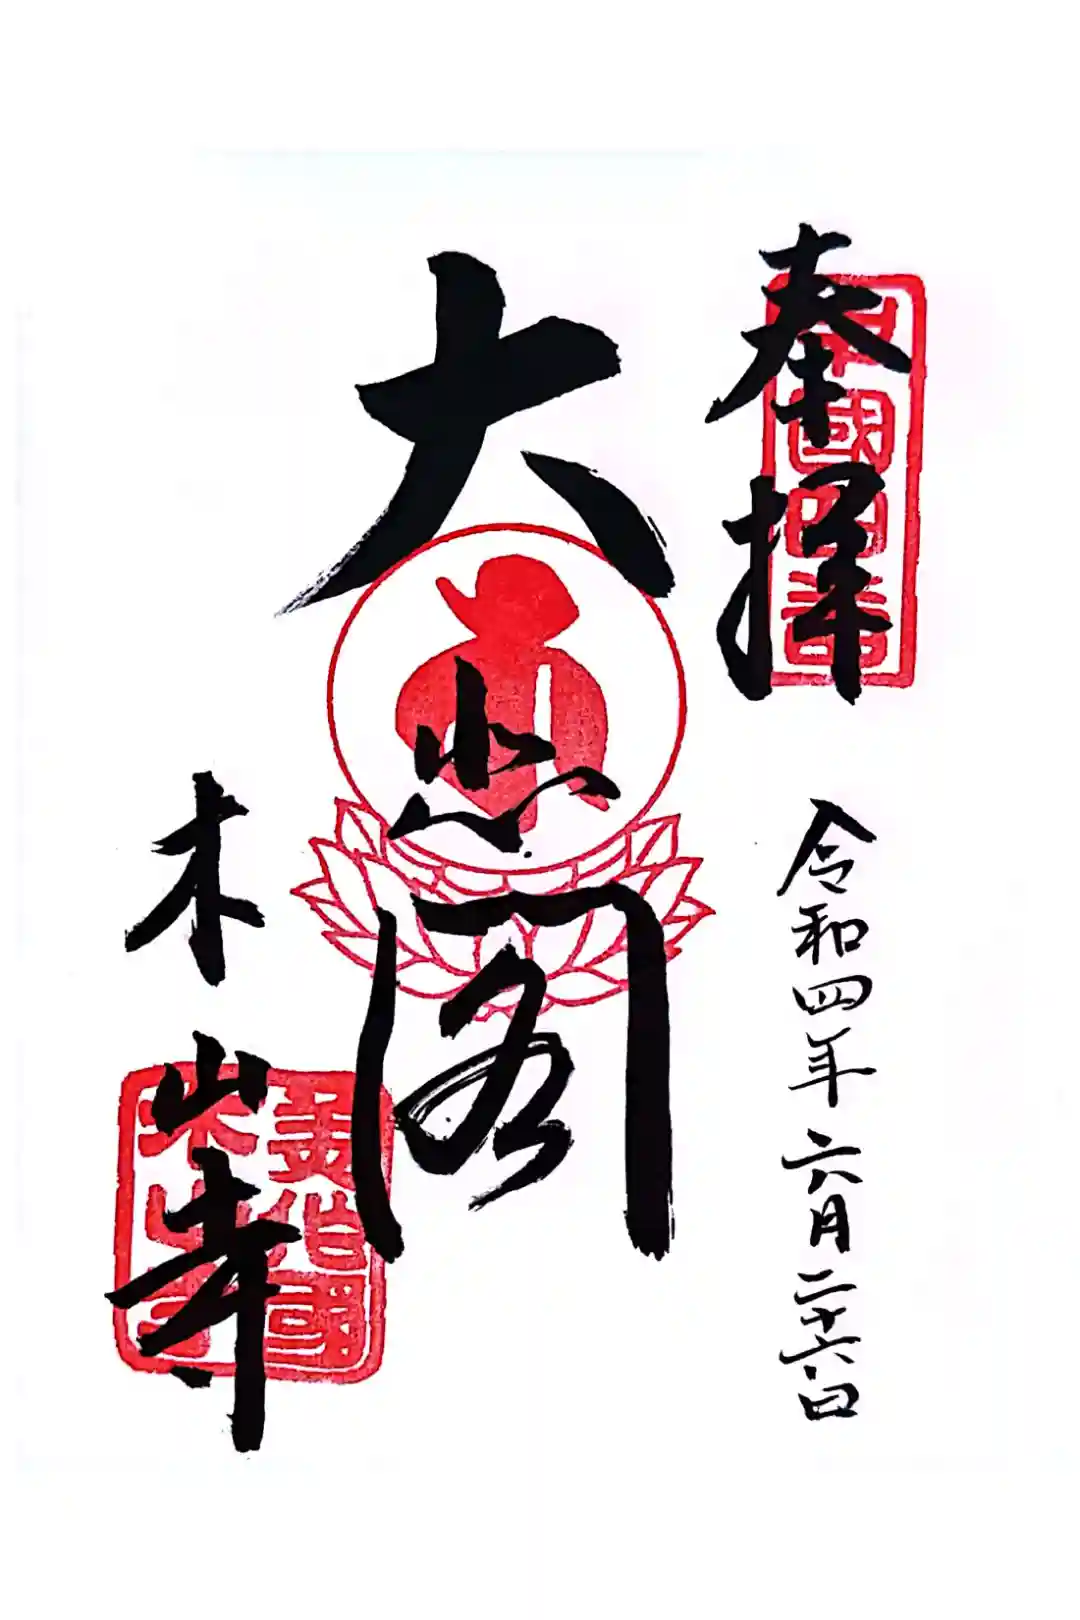 奉拝
中國四番
令和四年六月二十六日
大悲閣
木山寺
美作國
木山寺